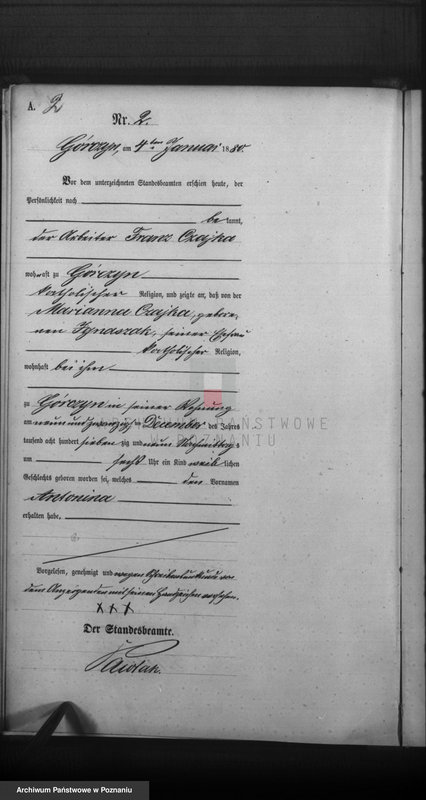 A. 2
Nr. 2.
Górczyn, am 4ten Januar 1880.
Vor dem unterzeichneten Standesbeamten erschien heute, der
Persönlichkeit nach
be kannt,
der Arbeiter Franz Czajka
wohnhaft zu Górczyn
katholischer Religion, und zeigte an, daß von der
Marianna Czajka, gebore-
nen Ignaszak, seiner Ehefrau
katholischer Religion,
wohnhaft bei ihm
zu Górczyn in seiner Wohnung
am neun und zwanzigsten December des Jahres
tausend acht hundert sieben zig und neun Nachmittags
um sechs Uhr ein Kind weib lichen
Geschlechts geboren worden sei, welches den Vornamen
Antonina
erhalten habe.
Vorgelesen, genehmigt und wegen Schreibensunkunde von
dem Anzeigenden mit seinem Handzeichen versehen.
XXX
Der Standesbeamte.
ARCHIWUM PAŃSTWOWE
W POZNANIU
Archiwum Państwowe w Poznaniu